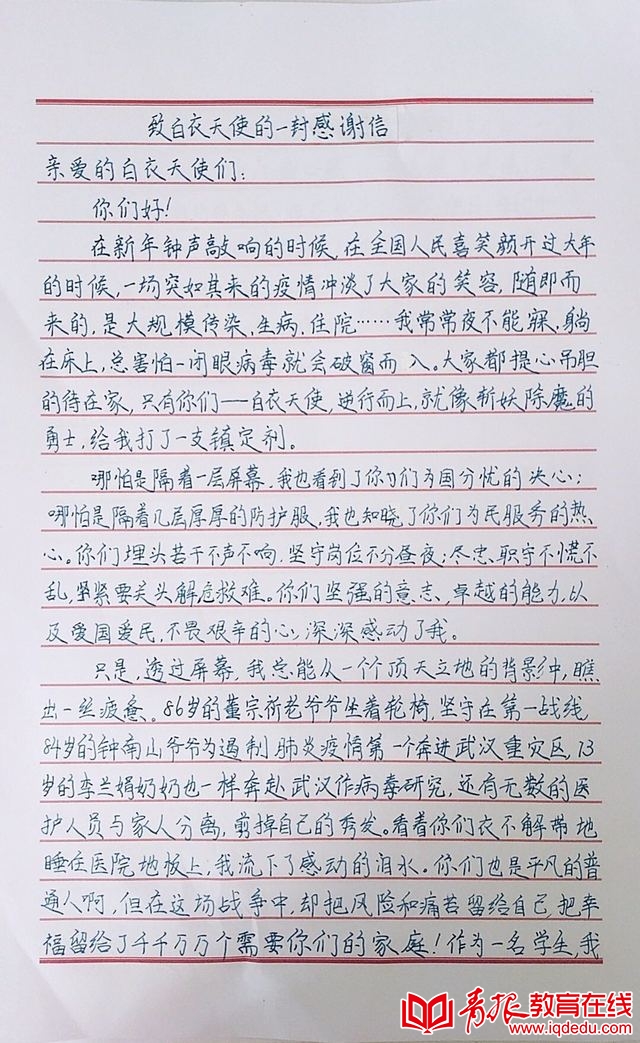 致白衣天使的一封感谢信
亲爱的白衣天使们：
你们好！
在新年钟声敲响的时候，在全国人民喜笑颜开过大年
的时候，一场突如其来的疫情冲淡了大家的笑容，随即而
来的，是大规模传染，生病，住院……我常常夜不能寐，躺
在床上，总害怕一闭眼病毒就会破窗而入。大家都提心吊胆
的待在家，只有你们——白衣天使，逆行而上，就像斩妖除魔的
勇士，给我打了一支镇定剂。
哪怕是隔着一层屏幕，我也看到了你们为国分忧的决心；
哪怕是隔着几层厚厚的防护服，我也知晓了你们为民服务的热
心。你们埋头苦干不声不响，坚守岗位不分昼夜；尽忠职守不慌不
乱，紧要关头解危救难。你们坚强的意志，卓越的能力，以
及爱国爱民，不畏艰辛的心，深深感动了我。
只是，透过屏幕，我总能从一个个顶天立地的背影中，瞧
出一丝疲惫。86岁的董宗祈老爷爷坐着轮椅，坚守在第一战线，
84岁的钟南山爷爷为遏制肺炎疫情第一个奔进武汉重灾区，73
岁的李兰娟奶奶也一样奔赴武汉作病毒研究，还有无数的医
护人员与家人分离，剪掉自己的秀发。看着你们衣不解带地
睡在医院地板上，我流下了感动的泪水。你们也是平凡的普
通人啊，但在这场战争中，却把风险和痛苦留给自己，把幸
福留给了千千万万个需要你们的家庭！作为一名学生，我
青报教育在线
www.iqdedu.com